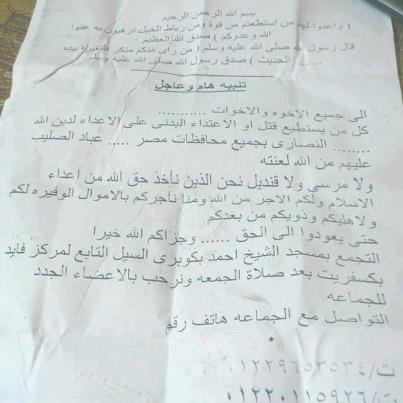 بسم الله الرحمن الرحيم
( واعدوا لهم من استطعتم من قوة ومن رباط الخيل ترهبون به عدوا
الله وعدوكم ) صدق الله العظيم
قال رسول الله صلى الله عليه وسلم ( من رأى منكم منكر فليغيره بيده
....... الحديث ) صدق رسول الله صلى الله عليه وسلم
تنبيه هام وعاجل
الى جميع الاخوه والاخوات ..........
كل من يستطيع قتل او الاعتداء البدنى على الاعداء لدين الله
........ النصارى بجميع محافظات مصر ..... عباد الصليب
عليهم من الله لعنته
ولا مرسى ولا قنديل نحن الذين نأخذ حق الله من اعداء
الاسلام ولكم الاجر من الله ومنا نأجركم بالاموال الوفيره لكم
ولاهليكم وذويكم من بعدكم
حتى يعودوا الى الحق ...... وجزاكم الله خيرا
التجمع بمسجد الشيخ احمد بكوبرى السيل التابع لمركز فايد
بكسفريت بعد صلاة الجمعه ونرحب بالاعضاء الجدد
للجماعه
التواصل مع الجماعه هاتف رقم
ت/٠١٢٢٩٦٥٣٥٣٤
ت/٠١٢٢٠١١٥٩٢٦